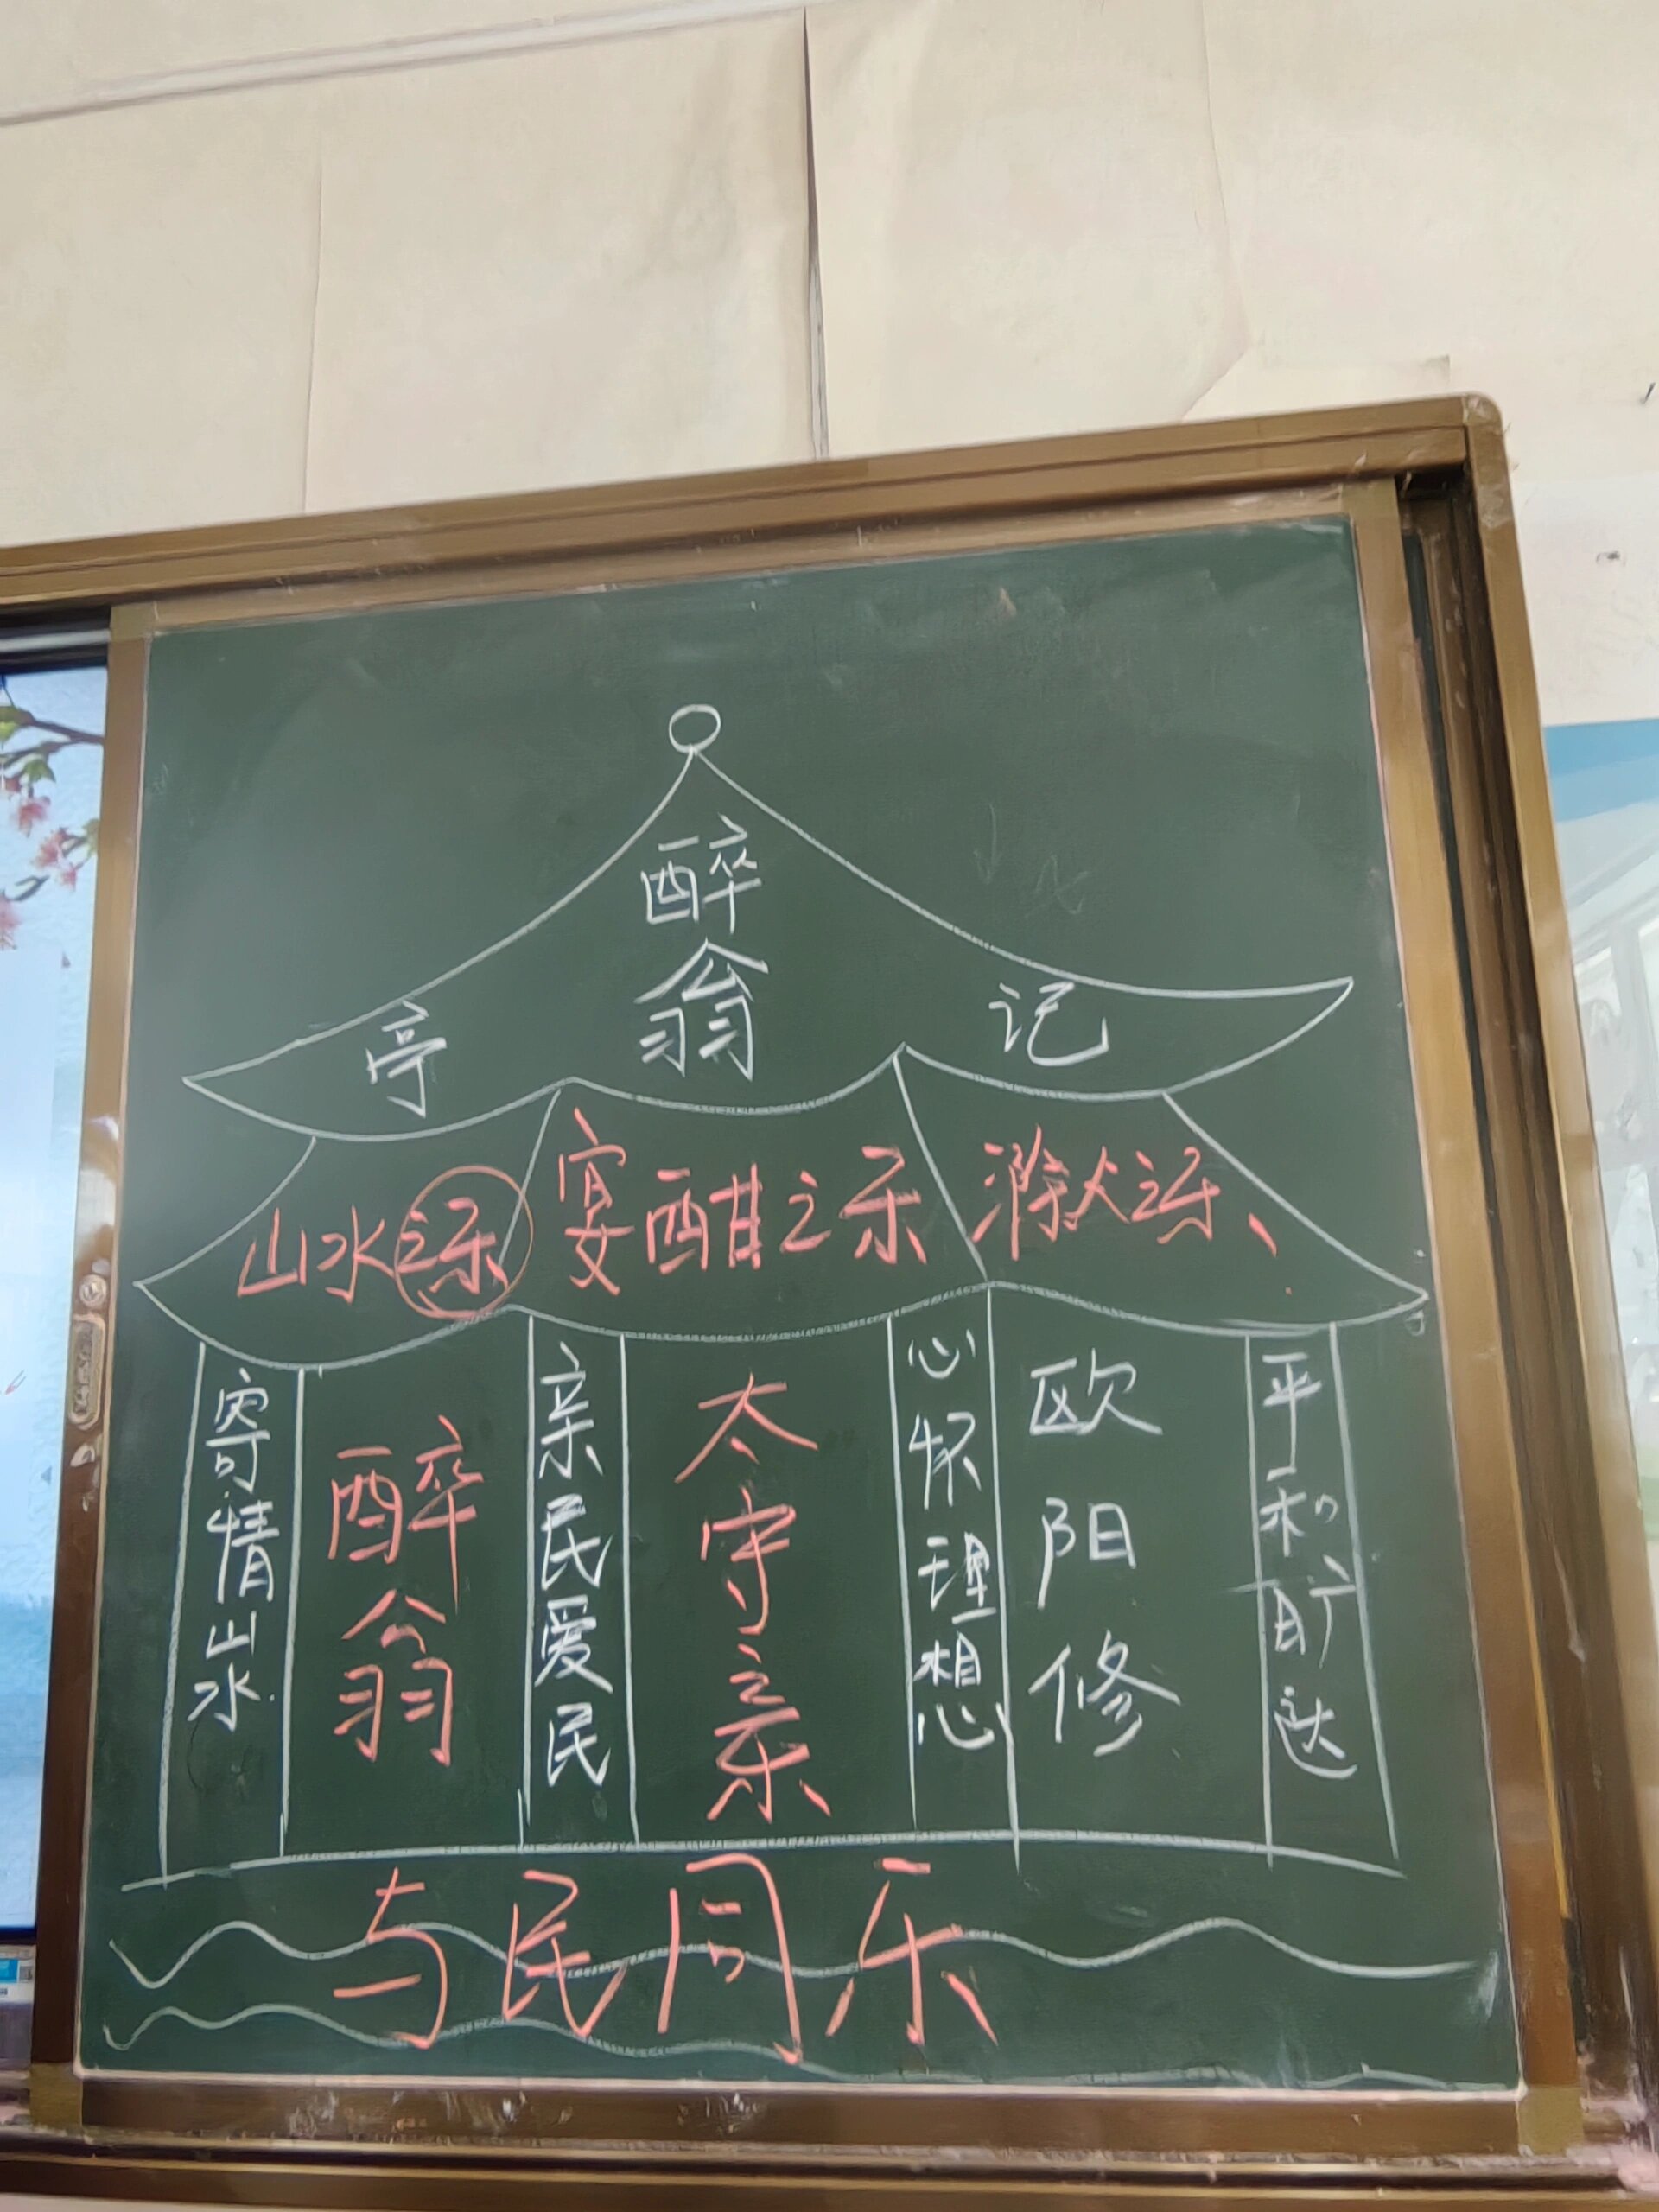 醉翁
亭 记
山水之乐 宴酣之乐 滁人之乐
寄情山水
醉翁
亲民爱民
太守亲
心怀理想
欧阳修
平和旷达
与民同乐